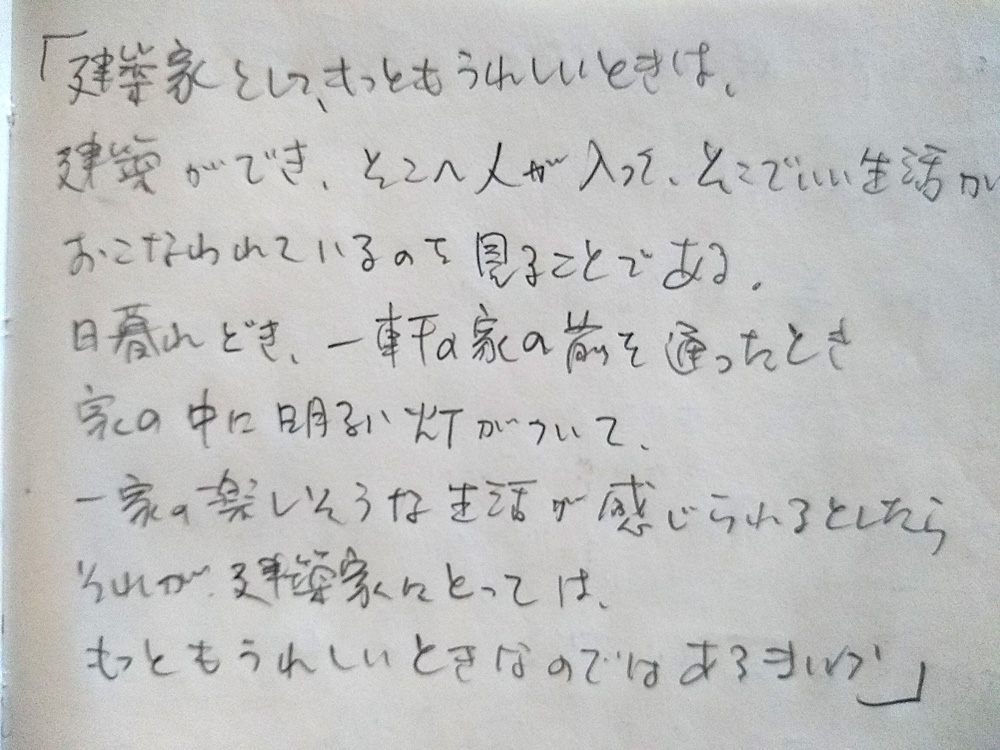 「建築家として、もっともうれしいときは、
建築ができ、そこへ人が入って、そこでいい生活が
おこなわれているのを見ることである。
日暮れどき、一軒の家の前を通ったとき
家の中に明るい灯がついて、
一家の楽しそうな生活が感じられるとしたら
それが、建築家にとっては、
もっともうれしいときなのではあるまいか」